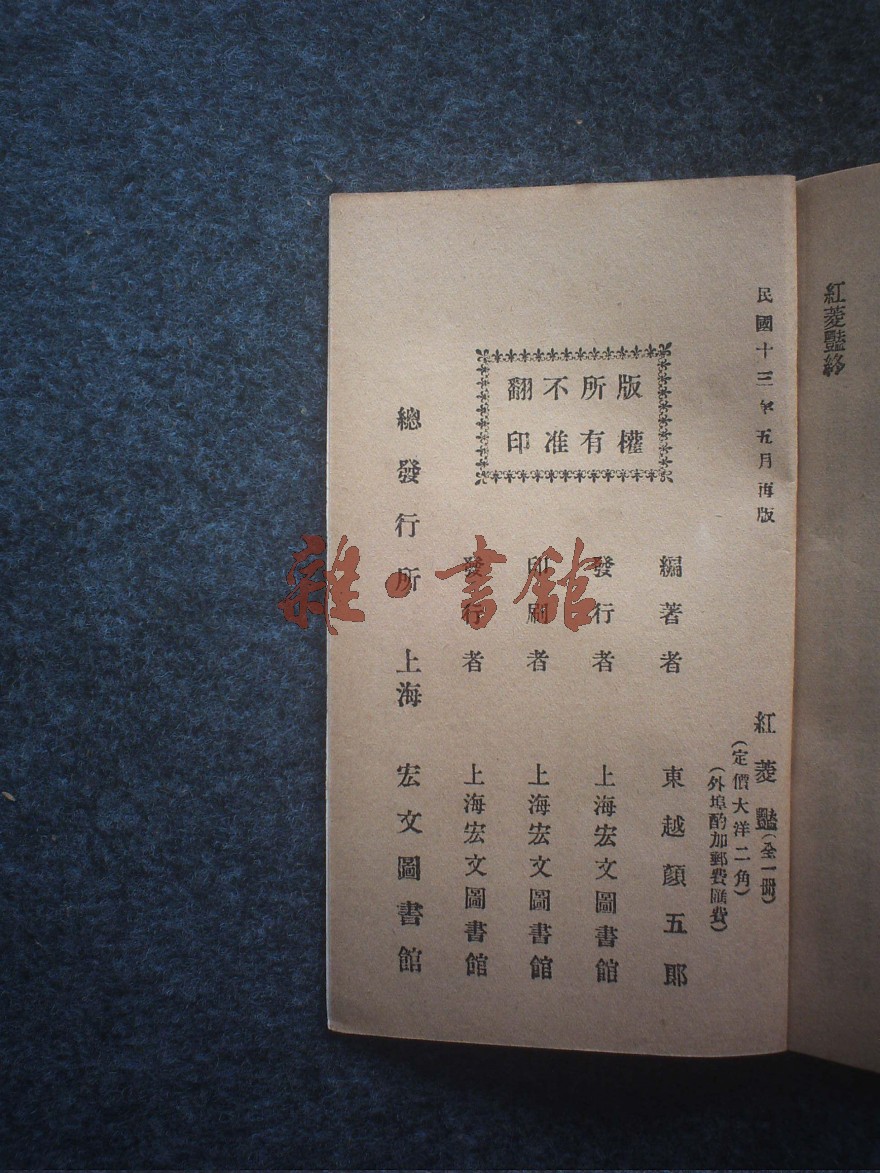 紅菱豔終
民國十三年五月再版
紅菱豔(全一冊)
(定價大洋二角)
(外埠酌加郵費匯費)
版權
所有
不准
翻印
編著者 東越顏五郎
發行者 上海宏文圖書館
印刷者 上海宏文圖書館
發行者 上海宏文圖書館
總發行所 上海 宏文圖書館
雜·書館